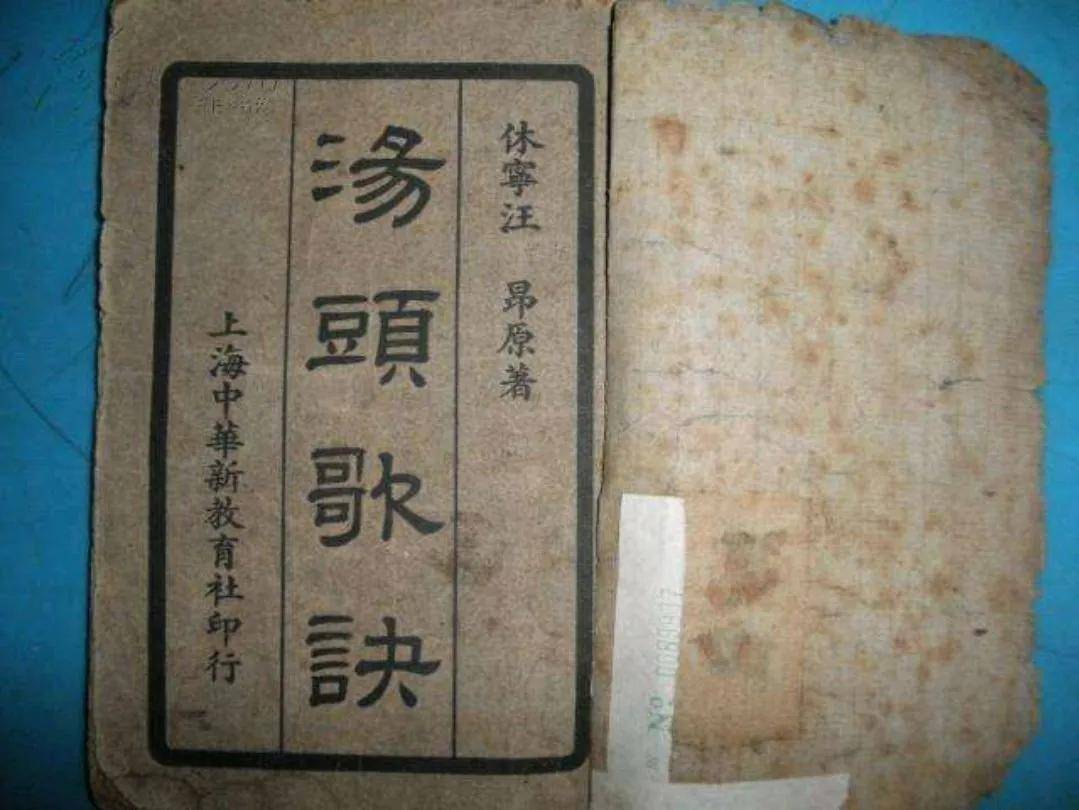 休寧汪 昂原著
湯頭歌訣
上海中華新教育社印行
No. 0089917